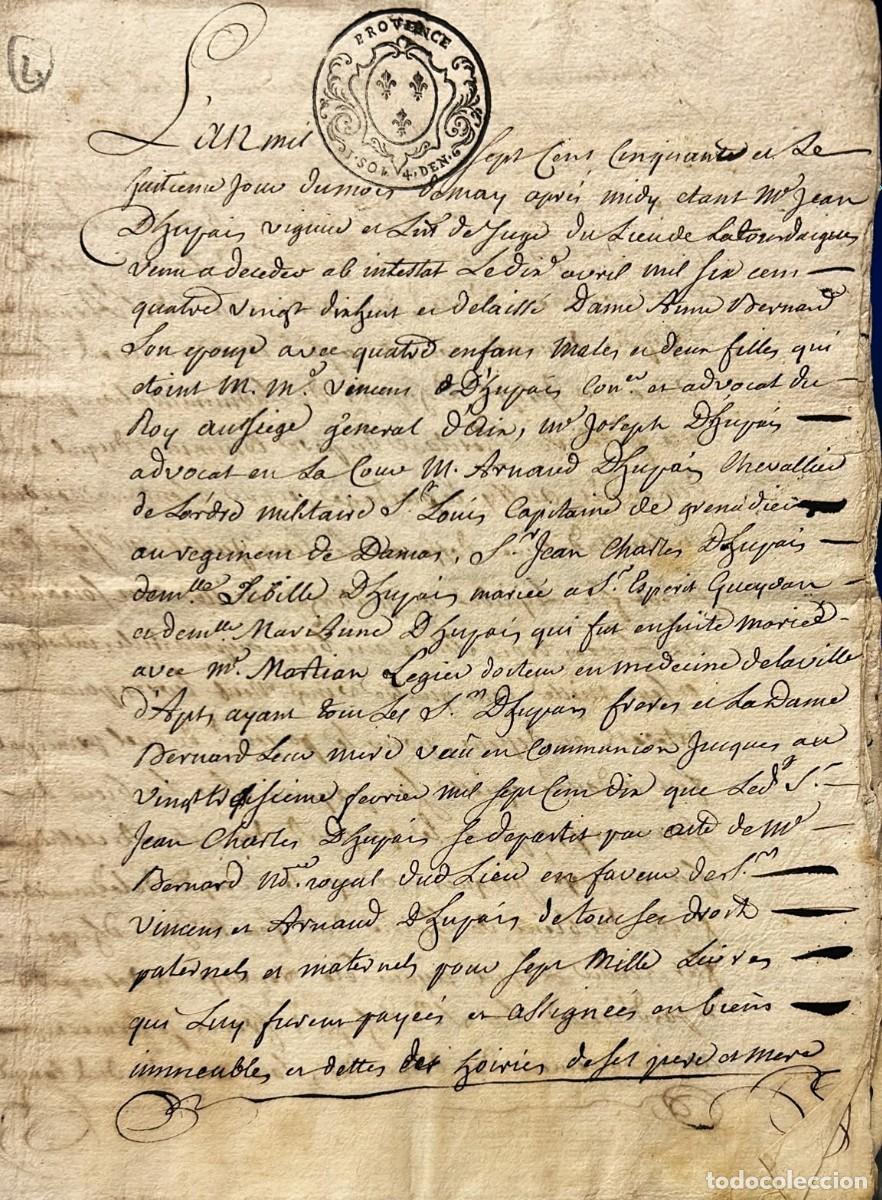 4
PROVENCE
1. SOL 4. DEN.
L'an mil sept Cens Cinquante et Le
huitieme Jour dumois demay aprés midy etant Me Jean
Dhupais viguier et Lnt de Juge du Lieu de Latourdaigues
venu a deceder ab intestat Le dix avril mil six cens
quatre vingt dixhuit et delaissé Dame Anne Bernard
Son epouze avec quatre enfans males et deux filles qui
etoint M. Me Vincens Dhupais Coner et advocat du
Roy au siege general d'Aix, Me Joseph Dhupais
advocat en La Cour M. Arnaud Dhupais Chevallier
de Lordre militaire St Louis Capitaine de grenadiers
au regiment de Damas, Sr Jean Charles Dhupais
demlle Sibille Dhupais mariée a Sr Esperit Gueydan
et demlle Marianne Dhupais qui fut ensuite mariée
avec Me Martian Legier docteur en medecine delaville
d'Apt, ayant tous Les Srs Dhupais freres et La Dame
Bernard Leur mere vecu en Communion Jusques au
vingt troisieme fevrier mil sept Cens dix que Led Sr
Jean Charles Dhupais se departit par acte de Me
Bernard Nre royal dud Lieu en faveur de Srs
Vincens et Arnaud Dhupais de tous ses droits
paternels et maternels pour sept Mille Livres
qui Luy furent payées et assignées en biens
immeubles et dettes des hoiries de ses pere et mere
todocoleccion